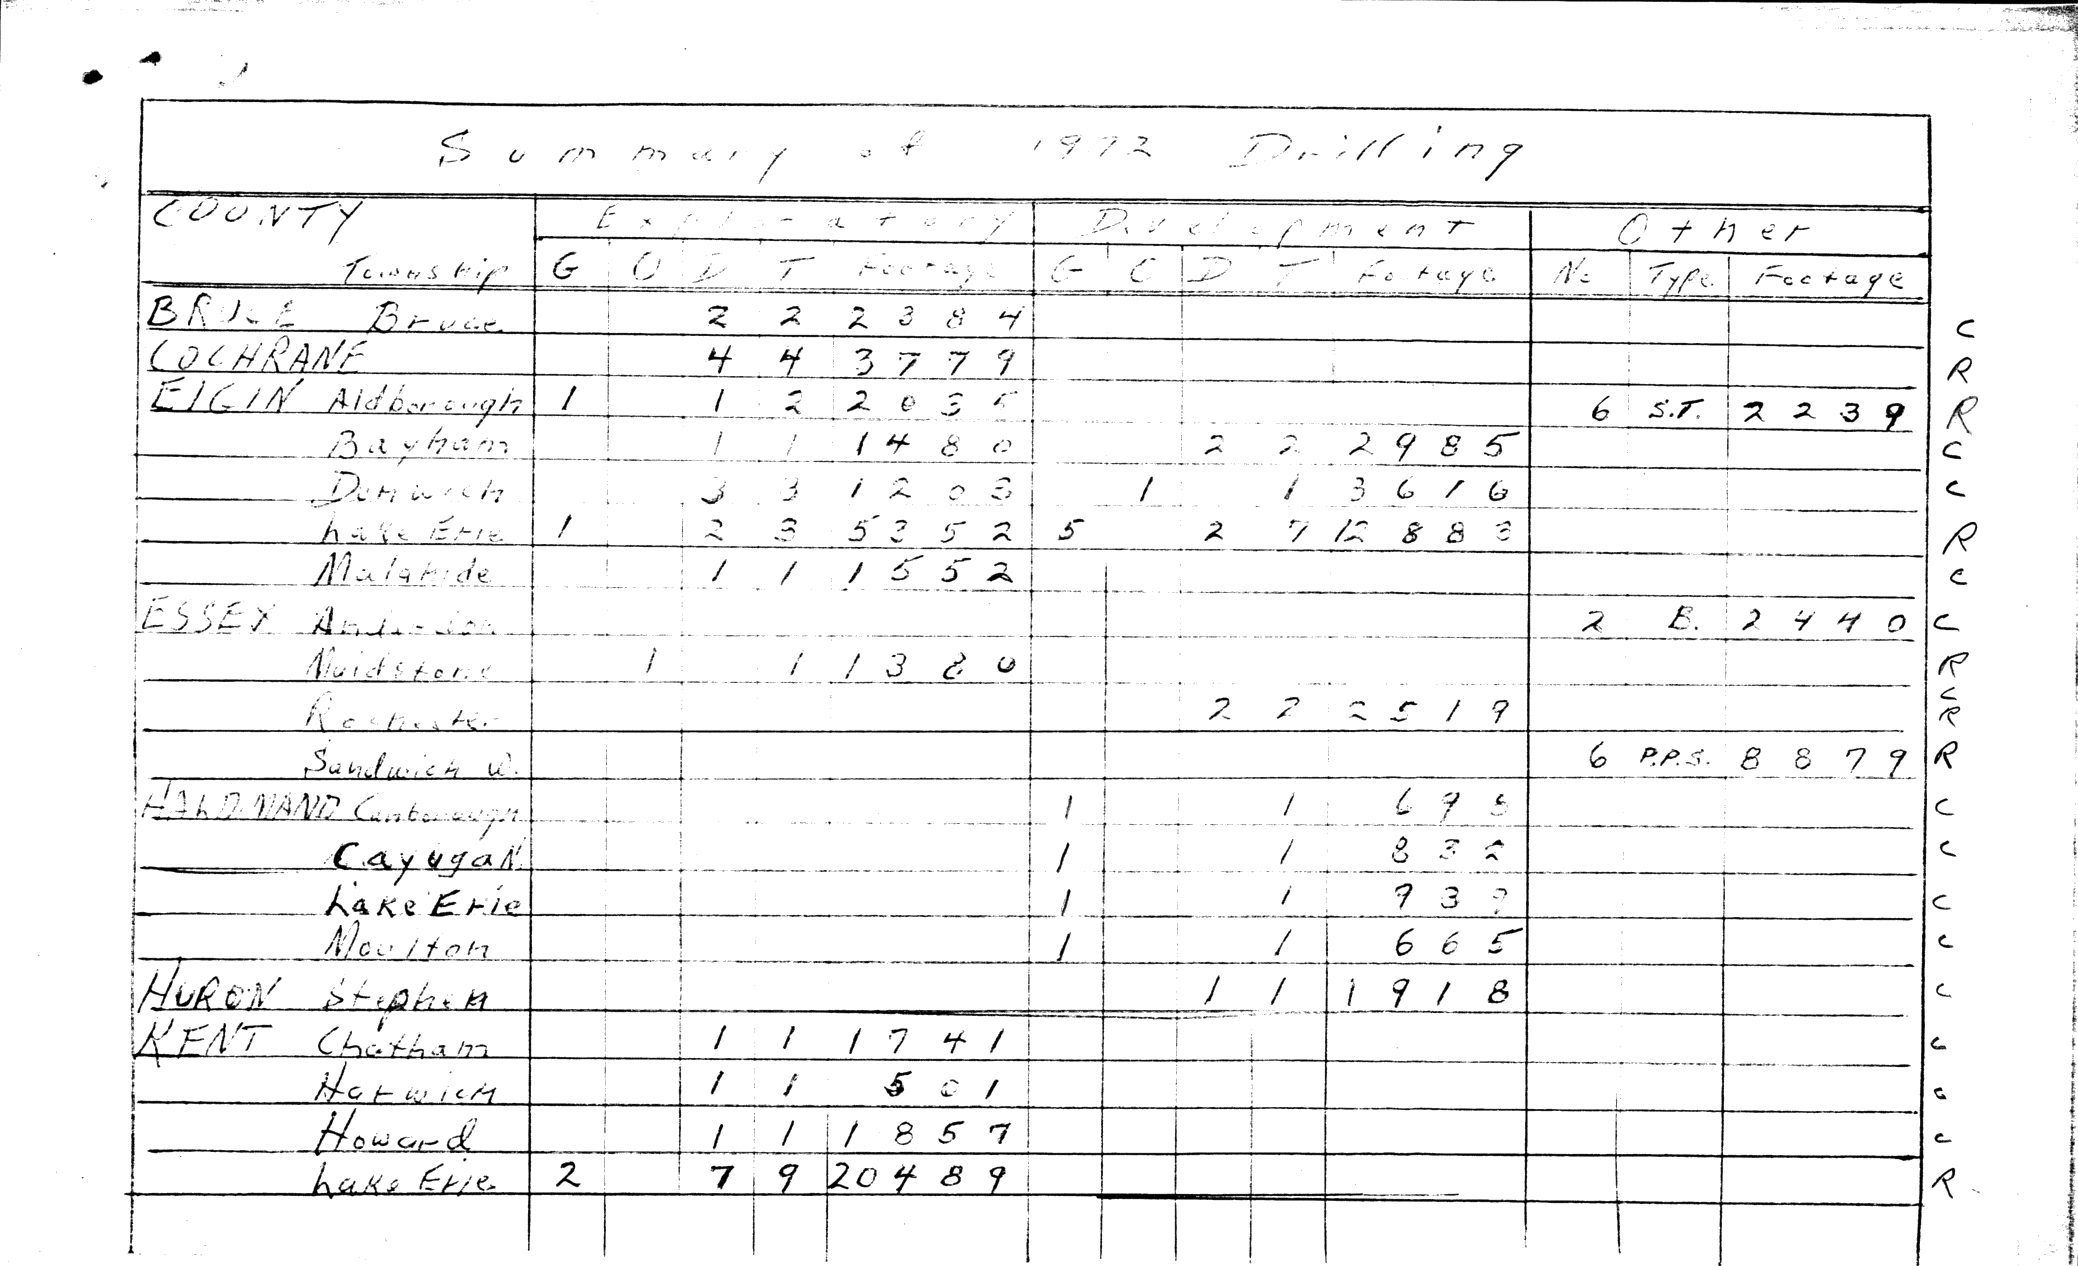 Summary of 1972 Drilling
COUNTY Exploratory Development Other
Township G O D T Footage G O D T Footage No Type Footage
BRUCE Bruce 2 2 2384 C
COCHRANE 4 4 3779 R
ELGIN Aldborough 1 1 2 2035 6 S.T. 2239 R
Bayham 1 1 1480 2 2 2985 C
Dunwich 3 3 1203 1 1 3616 C
Lake Erie 1 2 3 5352 5 2 7 12883 R
Malahide 1 1 1552 C
ESSEX Anderdon 2 B. 2440 C
Maidstone 1 1 1380 R
Rochester 2 2 2519 C R
Sandwich W. 6 P.P.S. 8879 R
HALDIMAND Canborough 1 1 695 C
Cayuga N. 1 1 832 C
Lake Erie 1 1 C
Moulton 1 1 665 C
HURON Stephen 1 1 1918 C
KENT Chatham 1 1 1741 C
Harwich 1 1 501 C
Howard 1 1 1857 C
Lake Erie 2 7 9 20489 R